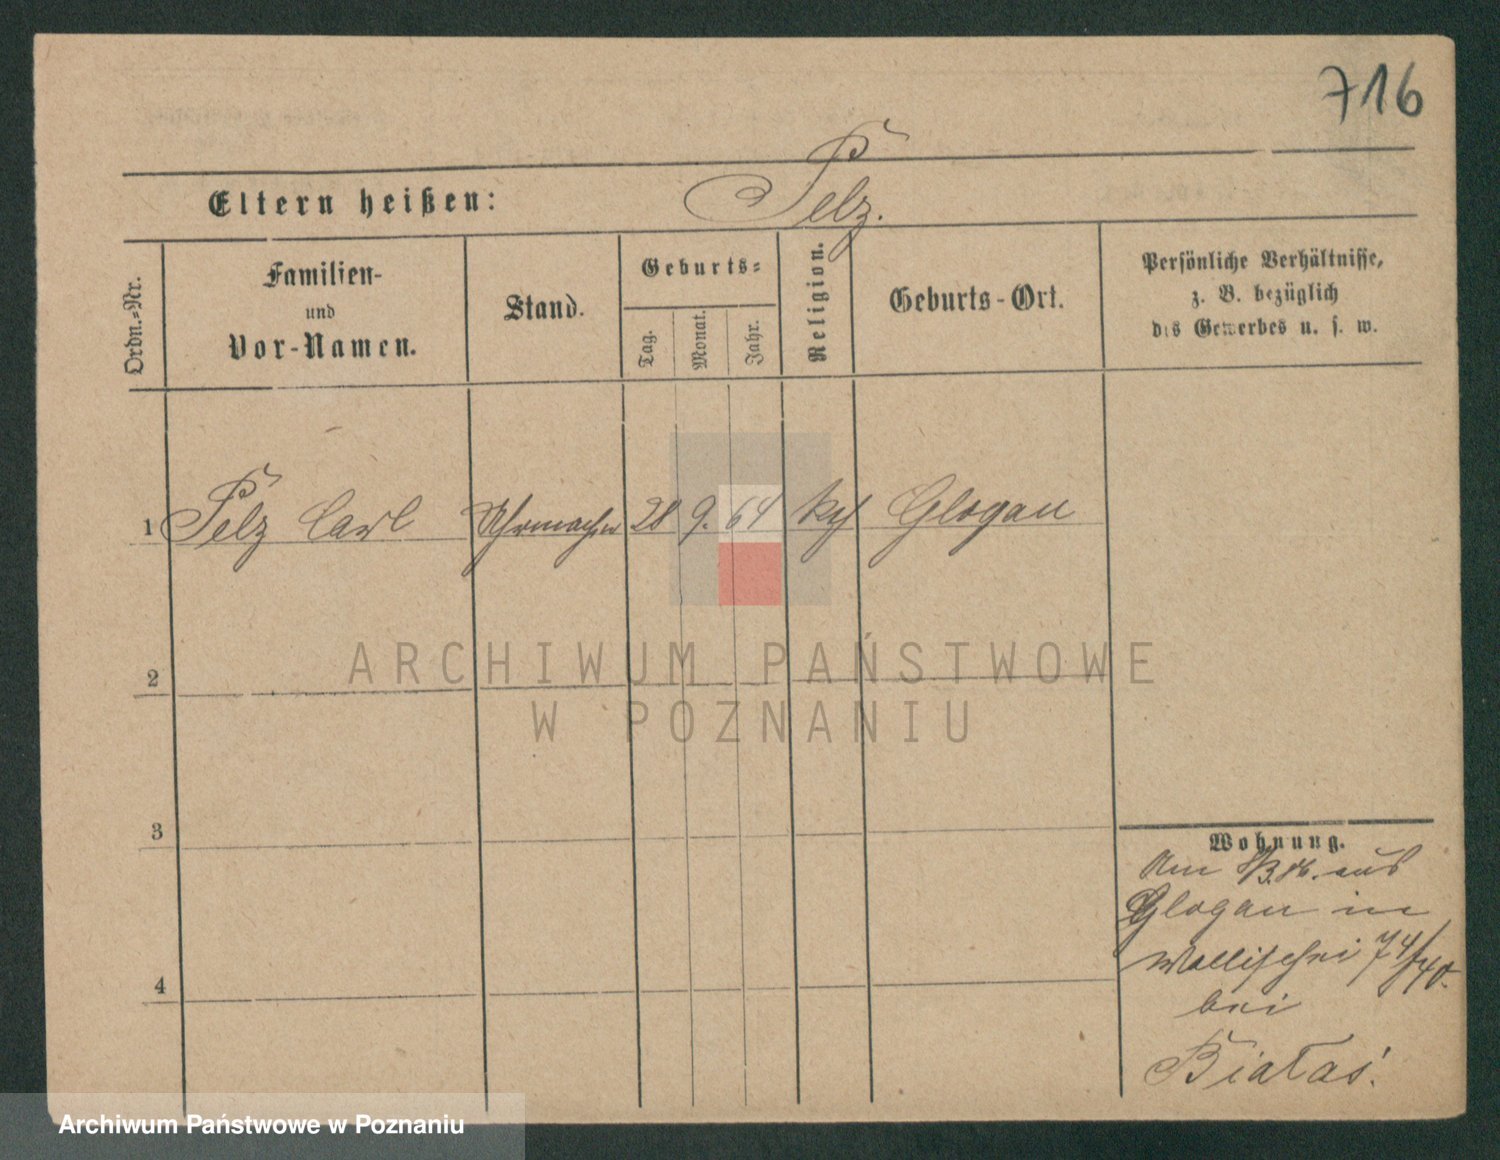 716
Eltern heißen: Pelz.
Ordn.-Nr.
Familien-
und
Vor-Namen.
Stand.
Geburts-
Tag.
Monat.
Jahr.
Religion.
Geburts-Ort.
Persönliche Verhältnisse,
z. B. bezüglich
des Gewerbes u. s. w.
1 Pelz Carl Uhrmacher 28 9. 64 Glogau
2
3
4
Wohnung.
Am aus
Glogau in
Wallischei 74/
bei
Białas.
ARCHIWUM PAŃSTWOWE
W POZNANIU
Archiwum Państwowe w Poznaniu